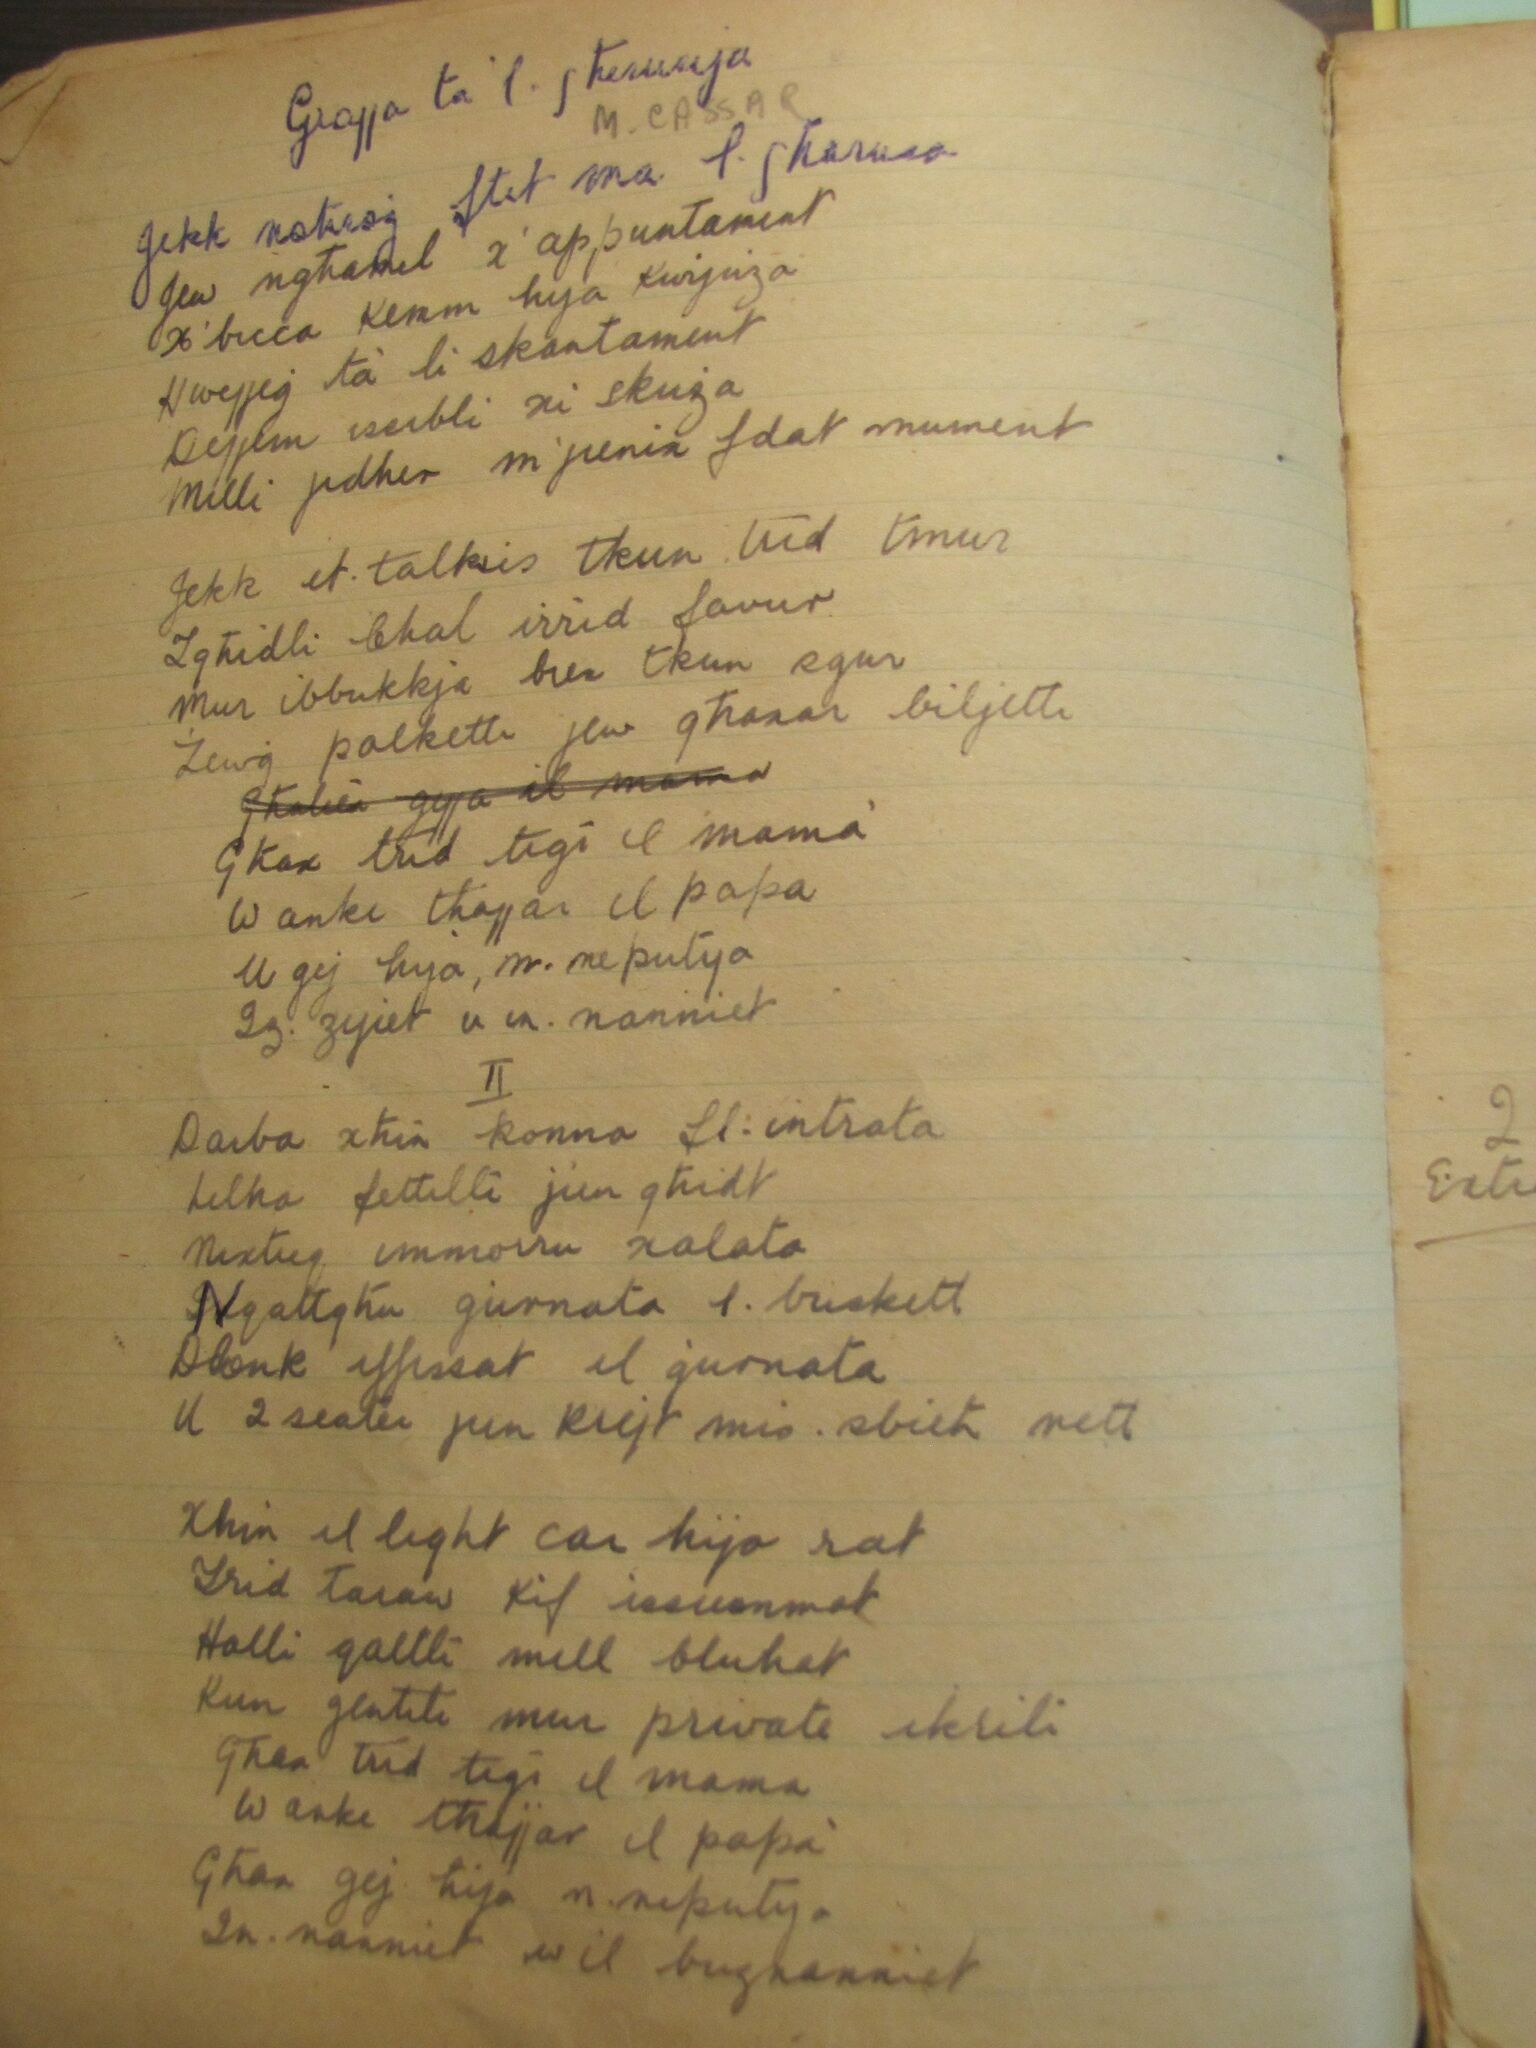 Grajja ta' l. għerusija
M. CASSAR
Jekk noħroġ ftit ma l. għarusa
Jew ngħamel x'appuntament
x'bicca kemm hija kurjuża
Hwejjeġ ta' li skantament
Dejjem issibli xi skuża
Milli jidher m'jienix f'dat mument
Jekk it. talkies tkun trid tmur
Igħidli Ħhal irrid favur
Mur ibbukkja biex tkun sgur
Żewġ palketti jew għaxar biljetti
Għaliex ġejja il mama
Għax trid tiġi il mamà
W anke tħajjar il papa
U ġej ħija, n. neputija
Iz. zijiet u in. nanniet
II
Darba xħin konna fl. intrata
lilha fettilli jien għidt
Nixtieq immorru xalata
Nqattgħu ġurnata l. buskett
Dlonk iffissat il ġurnata
U 2 seater jien krejt mis. sbieħ nett
Xhin il light car hija rat
Irid taraw kif issummat
Ħalli qaltli mill bluhat
Kun ġentili mur private ikrili
Għax trid tiġi il mama
W anke tħajjar il papà
Għax ġej ħija n. neputija
In. nanniet w il buznanniet
2